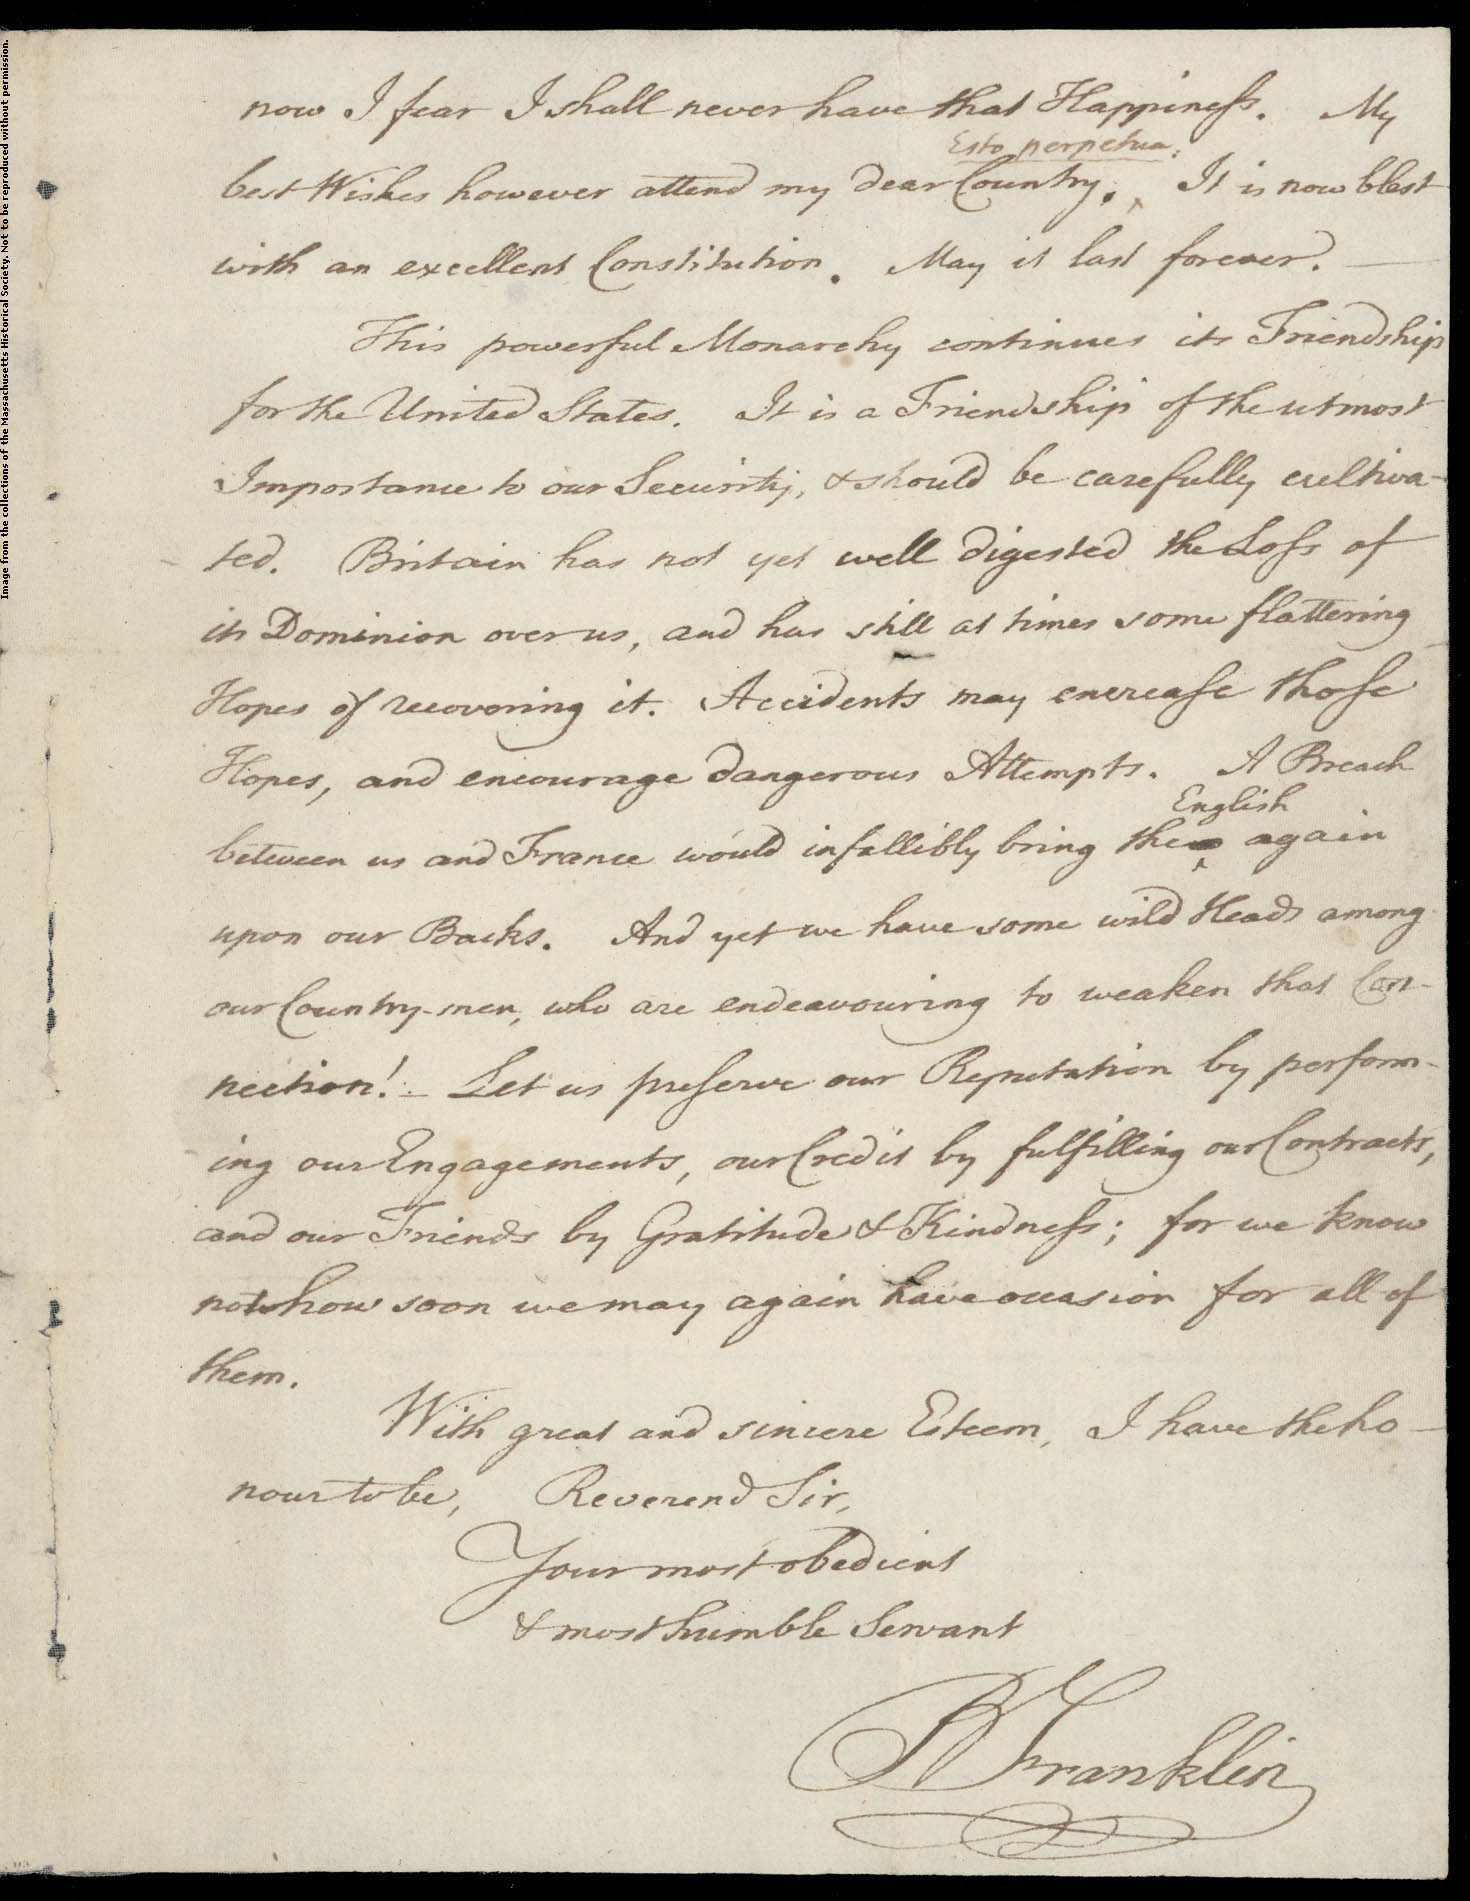 Image from the collections of the Massachusetts Historical Society. Not to be reproduced without permission.
now I fear I shall never have that Happiness. My
Esto perpetua.
best Wishes however attend my dear Country. ‸ It is now blest
with an excellent Constitution. May it last forever. —
This powerful Monarchy continues its Friendship
for the United States. It is a Friendship of the utmost
Importance to our Security, & should be carefully cultiva-
ted. Britain has not yet well digested the Loss of
its Dominion over us, and has still at times some flattering
Hopes of recovering it. Accidents may encrease those
Hopes, and encourage dangerous Attempts. A Breach
English
between us and France would infallibly bring the ‸ again
upon our Backs. And yet we have some wild Heads among
our Country-men, who are endeavouring to weaken that Con-
nection! — Let us preserve our Reputation by perform-
ing our Engagements, our Credit by fulfilling our Contracts,
and our Friends by Gratitude & Kindness; for we know
not how soon we may again have occasion for all of
them.
With great and sincere Esteem, I have the ho-
nour to be, Reverend Sir,
Your most obedient
& most humble Servant
B Franklin